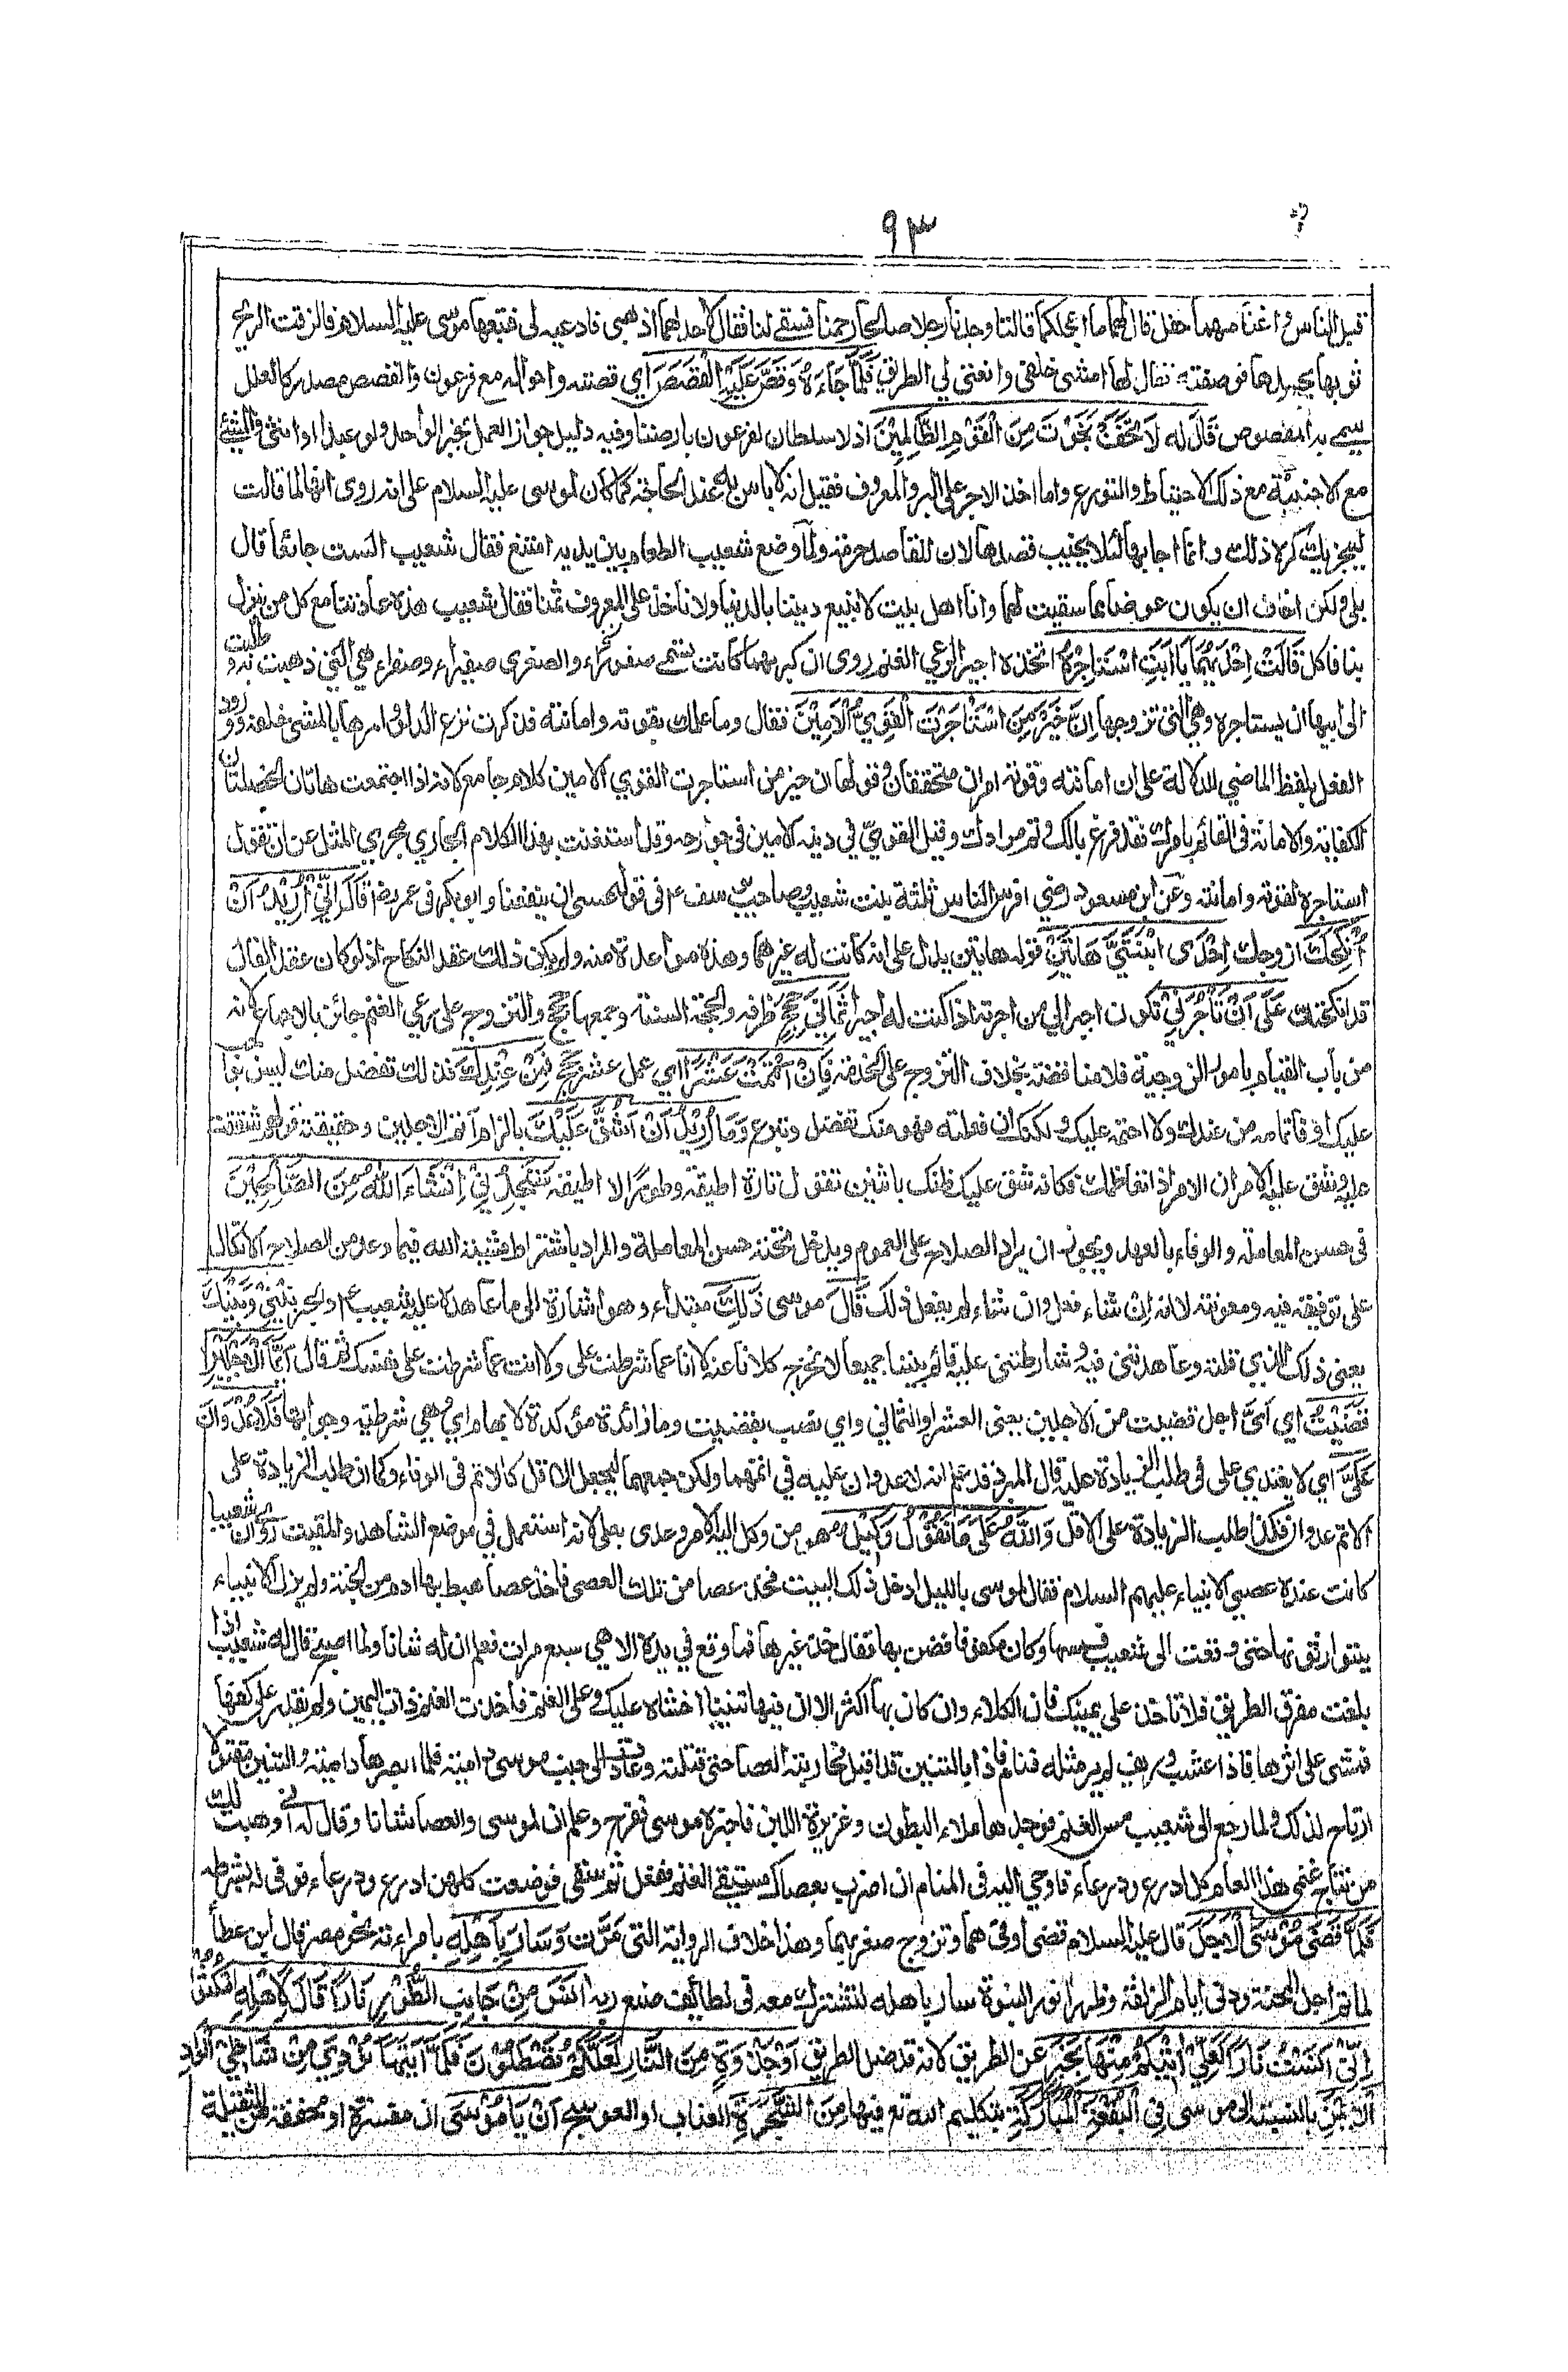 ٩٣
قبل الناس واغنامهما حفل قال لهما ما اعجلكما قالتا وجدنا رجلا صالحا رحمنا فسقى لنا فقال لاحدلهما اذهبي فادعيه لي فتبعها موسى عليه السلام فالزقت الريح
ثوبها بجسدها فوصفته فقال لها امشي خلفي وانعتي لي الطريق فَلَمَّا جَاءَهُ وَقَصَّ عَلَيْهِ الْقَصَصَ اي قصته واحواله مع فرعون والقصص مصدر كالعلل
سمي به المقصوص قَالَ له لَا تَخَفْ نَجَوْتَ مِنَ الْقَوْمِ الظَّالِمِيْنَ اذ لا سلطان لفرعون بارضنا وفيه دليل جواز العمل بخبر الواحد ولو عبدا او انثى والمشي
مع الاجنبية مع ذلك الاحتياط والتورع واما اخذ الاجر على البر والمعروف فقيل انه لا باس به عند الحاجة كما كان لموسى عليه السلام على انه روى انها لما قالت
ليجزيك كره ذلك وانما اجابها لئلا يخيب قصدها لان للقاصد حرمة ولما وضع شعيب الطعام بين يديه امتنع فقال شعيب الست جائعا قال
بلى ولكن اخاف ان يكون عوضا مما سقيت لهما وانا اهل بيت لا نبيع ديننا بالدنيا ولا ناخذ على المعروف ثمنا فقال شعيب هذه عادتنا مع كل من ينزل
بنا فاكل قَالَتْ اِحْدٰىهُمَا يَا اَبَتِ اسْتَاجِرْهُ اتخذه اجيرا لرعي الغنم روى ان كبرىهما كانت تسمى صفراء والصغرى صفيراء وصفراء هي التي ذهبت به وطلبت
الى ابيها ان يستاجره وهي التي تزوجها اِنَّ خَيْرَ مَنِ اسْتَاْجَرْتَ الْقَوِيُّ الْاَمِيْنُ فقال وما علمك بقوته وامانته فذكرت نزع الدلو وامرها بالمشي خلفه وورود
الفعل بلفظ الماضي للدلالة على ان امانته وقوته امران متحققان وقولها ان خير من استاجرت القوي الامين كلام جامع لانه اذا اجتمعت هاتان الخصلتان
الكفاية والامانة في القائم بامرك فقد فرغ بالك وتم مرادك وقيل القوي في دينه الامين في جوارحه وقد استغنت بهذا الكلام الجاري مجرى المثل عن ان تقول
استاجره لقوته وامانته وعن ابن مسعود رضي افرس الناس ثلثة بنت شعيب وصاحب يوسف ع م في قوله عسى ان ينفعنا وابو بكر في عمر رضـ قَالَ اِنِّيْ اُرِيْدُ اَنْ
اُنْكِحَكَ ازوجك اِحْدَى ابْنَتَيَّ هَاتَيْنِ قوله هاتين يدل على انه كانت له غيرهما وهذه مواعدة منه ولم يكن ذلك عقد النكاح اذ لو كان عقد القال
قد انكحتك عَلٰى اَنْ تَاْجُرَنِيْ تكون اجيرا لي من اجرته اذا كنت له اجيرا ثَمَانِيَ حِجَجٍ ظرفه والحجة السنة وجمعها حجج والتزوج على رعي الغنم جائز بالاجماع لانه
من باب القيام بامور الزوجية فلا مناقضة بخلاف التزوج على الخدمة فَاِنْ اَتْمَمْتَ عَشْرًا اي عمل عشر حجج فَمِنْ عِنْدِكَ فذلك تفضل منك ليس بواجب
عليك او فاتمامه من عندك ولا احتمه عليك ولكنك ان فعلته فهو منك تفضل وتبرع وَمَا اُرِيْدُ اَنْ اَشُقَّ عَلَيْكَ بالزام اتم الاجلين وحقيقة قولهم شققت
عليه وشق عليه الامر ان الامر اذا تعاظمك فكانه شق عليك ظنك باثنين تقول تارة اطيقه وطورا لا اطيقه سَتَجِدُنِيْ اِنْشَاءَ اللّٰهُ مِنَ الصَّالِحِيْنَ
في حسن المعاملة والوفاء بالعهد ويجوز ان يراد الصلاح على العموم ويدخل تحته حسن المعاملة والمراد باشتراط مشيئة الله فيما وعد من الصلاح الاتكال
على توفيقه فيه ومعونته لانه ان شاء فعل وان شاء لم يفعل ذلك قَالَ موسى ذٰلِكَ مبتداء وهو اشارة الى ما عاهده عليه شعيب ع م والخبر بَيْنِيْ وَبَيْنَكَ
يعني ذلك الذي قلته وعاهدتني فيه وشارطتني عليه قائم بيننا جميعا لا يخرج كلانا عنه لا انا عما شرطت علي ولا انت عما شرطت على نفسك ثم قال اَيَّمَا الْاَجَلَيْنِ
قَضَيْتُ اي اَيَّ اجل قضيت من الاجلين يعني العشر او الثماني واي نصب بقضيت وما زائدة مؤكدة لابهام اي وهي شرطية وجوابها فَلَا عُدْوَانَ
عَلَيَّ اي لا يعتدي علي في طلب الزيادة عليه قال المبرد قد علم انه لا عدوان عليه في اتمهما ولكن جمعهما ليجعل الاقل كالاتم في الوفاء وكما ان طلب الزيادة على
الاتم عدوان فكذا طلب الزيادة على الاقل وَاللّٰهُ عَلٰى مَا نَقُوْلُ وَكِيْلٌ هو من وكل اليه الامر وعدى بعلى لانه استعمل في موضع الشاهد والمقيت روى ان شعيبا
كانت عنده عصي الانبياء عليهم السلام فقال لموسى بالليل ادخل ذلك البيت فخذ عصا من تلك العصي فاخذ عصا هبط بها ادم من الجنة ولم يزل الانبياء
يتوارثونها حتى وقعت الى شعيب فمسها وكان مكفوفا فضن بها فقال خذ غيرها فما وقع في يده الا هي سبع مرات فعلم ان له شانا ولما اصبح قال له شعيب اذا
بلغت مفرق الطريق فلا تاخذ على يمينك فان الكلاء وان كان بها اكثر الا ان فيها تنينا اخشاه عليك وعلى الغنم فاخذت الغنم ذات اليمين ولم يقدر على كفها
فمشى على اثرها فاذا عشب وريف لم ير مثله فنام فاذا بالتنين قد اقبل فحاربته العصا حتى قتلته وعادت الى جنب موسى دامية فلما ابصرها دامية والتنين مقتولا
ارتاح لذلك ولما رجع الى شعيب مس الغنم فوجدها ملاء البطون وغزيرة اللبن فاخبره موسى ففرح وعلم ان لموسى والعصا شانا وقال له اني وهبت لك
من نتاج غنمي هذا العام كل ادرع ودرعاء فاوحي اليه في المنام ان اضرب بعصاك مستقى الغنم ففعل ثم سقى فوضعت كلهن ادرع ودرعاء فوفى له بشرطه
فَلَمَّا قَضٰى مُوْسَى الْاَجَلَ قال عليه السلام قضى اوفىهما وتزوج صغرىهما وهذا خلاف الرواية التي مَرَّت وَسَارَ بِاَهْلِهِ بامراءته نحو مصر قال ابن عطا
لما تم اجل المحنة ودنى ايام الزلفة وظهر انوار النبوة سار باهله لتشترك معه في لطائف صنع ربه اٰنَسَ مِنْ جَانِبِ الطُّوْرِ نَارًا قَالَ لِاَهْلِهِ امْكُثُوْا
اِنِّيْ اٰنَسْتُ نَارًا لَعَلِّيْ اٰتِيْكُمْ مِنْهَا بِخَبَرٍ عن الطريق لانه قد ضل الطريق اَوْ جَذْوَةٍ مِنَ النَّارِ لَعَلَّكُمْ تَصْطَلُوْنَ فَلَمَّا اَتٰهَا نُوْدِيَ مِنْ شَاطِئِ الْوَادِ
الْاَيْمَنِ بالنسبة الى موسى فِي الْبُقْعَةِ الْمُبَارَكَةِ بتكليم الله تع فيها مِنَ الشَّجَرَةِ العناب او العوسج اَنْ يَا مُوْسٰى ان مفسرة او مخففة من الثقيلة